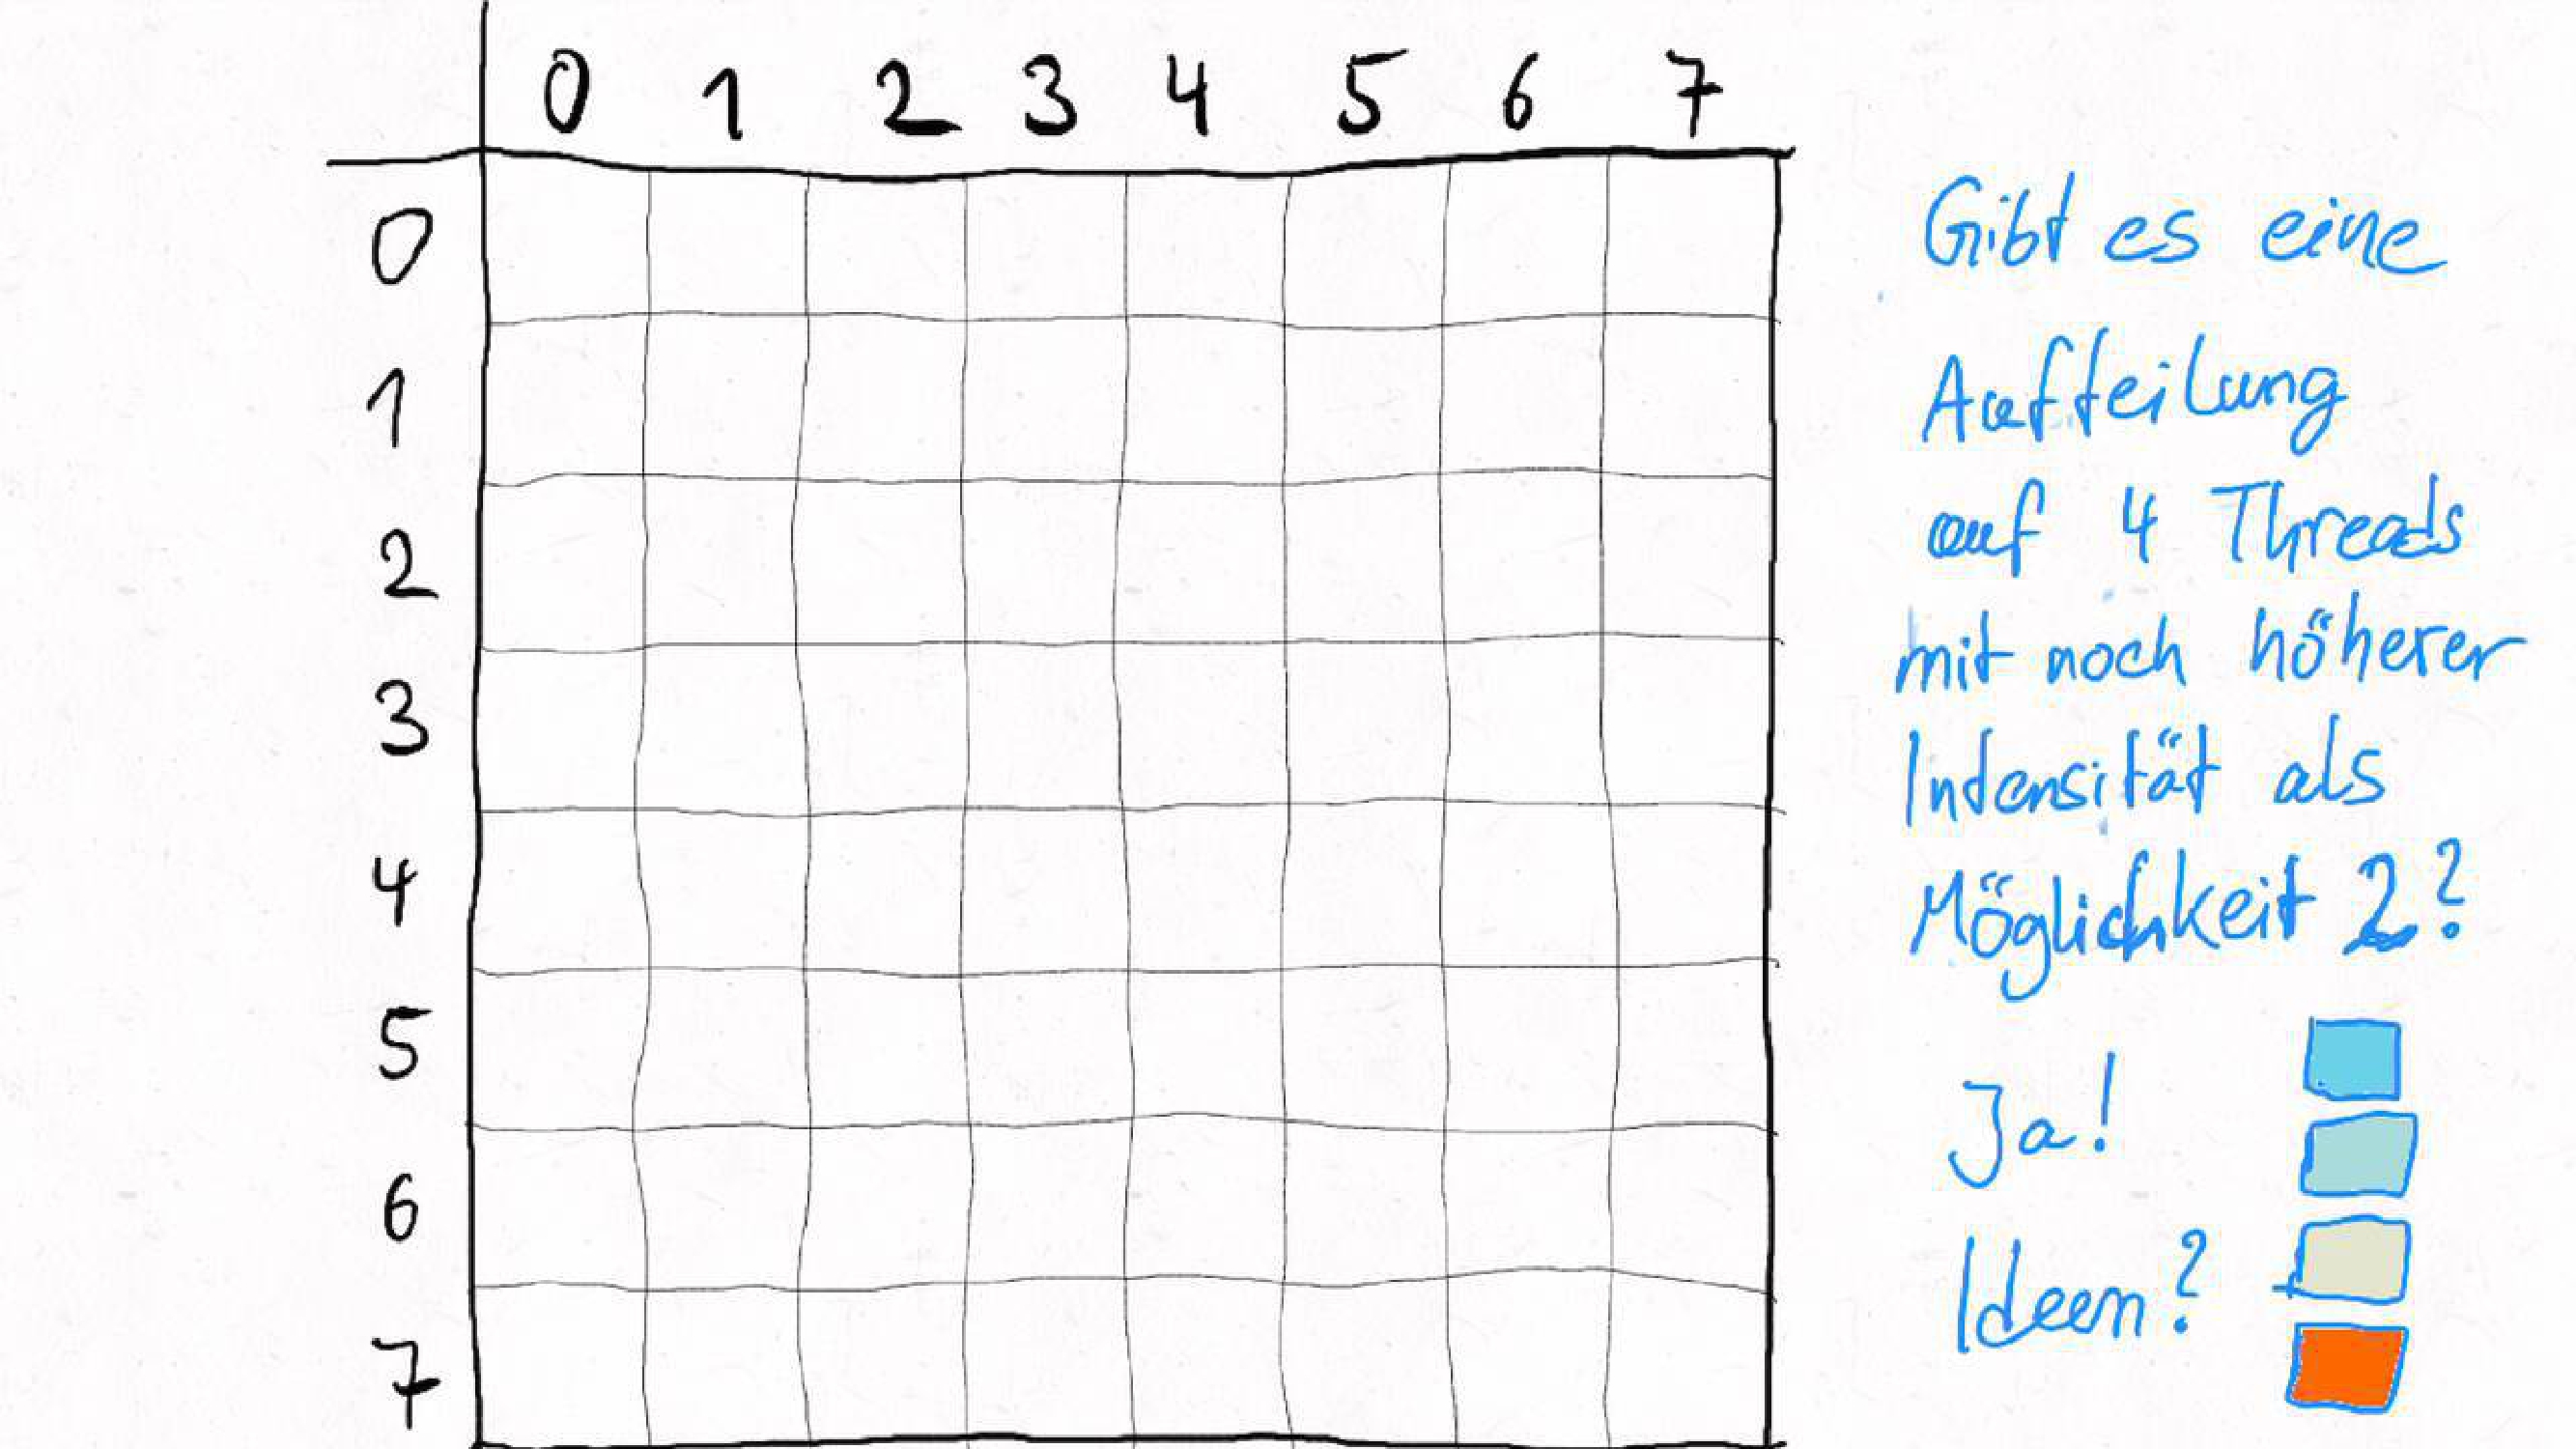 0 1 2 3 4 5 6 7
0
1
2
3
4
5
6
7
Gibt es eine
Aufteilung
auf 4 Threads
mit noch höherer
Intensität als
Möglichkeit 2?
Ja!
Ideen?